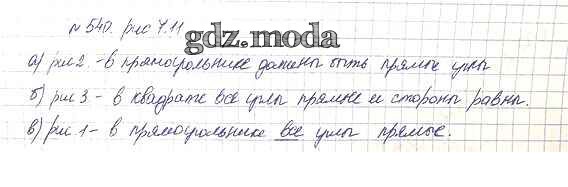 № 540. рис 7.11
gdz.moda
а) рис 2 - в прямоугольнике должны быть прямые углы
б) рис 3 - в квадрате все углы прямые и стороны равны.
в) рис 1 - в прямоугольнике все углы прямые.